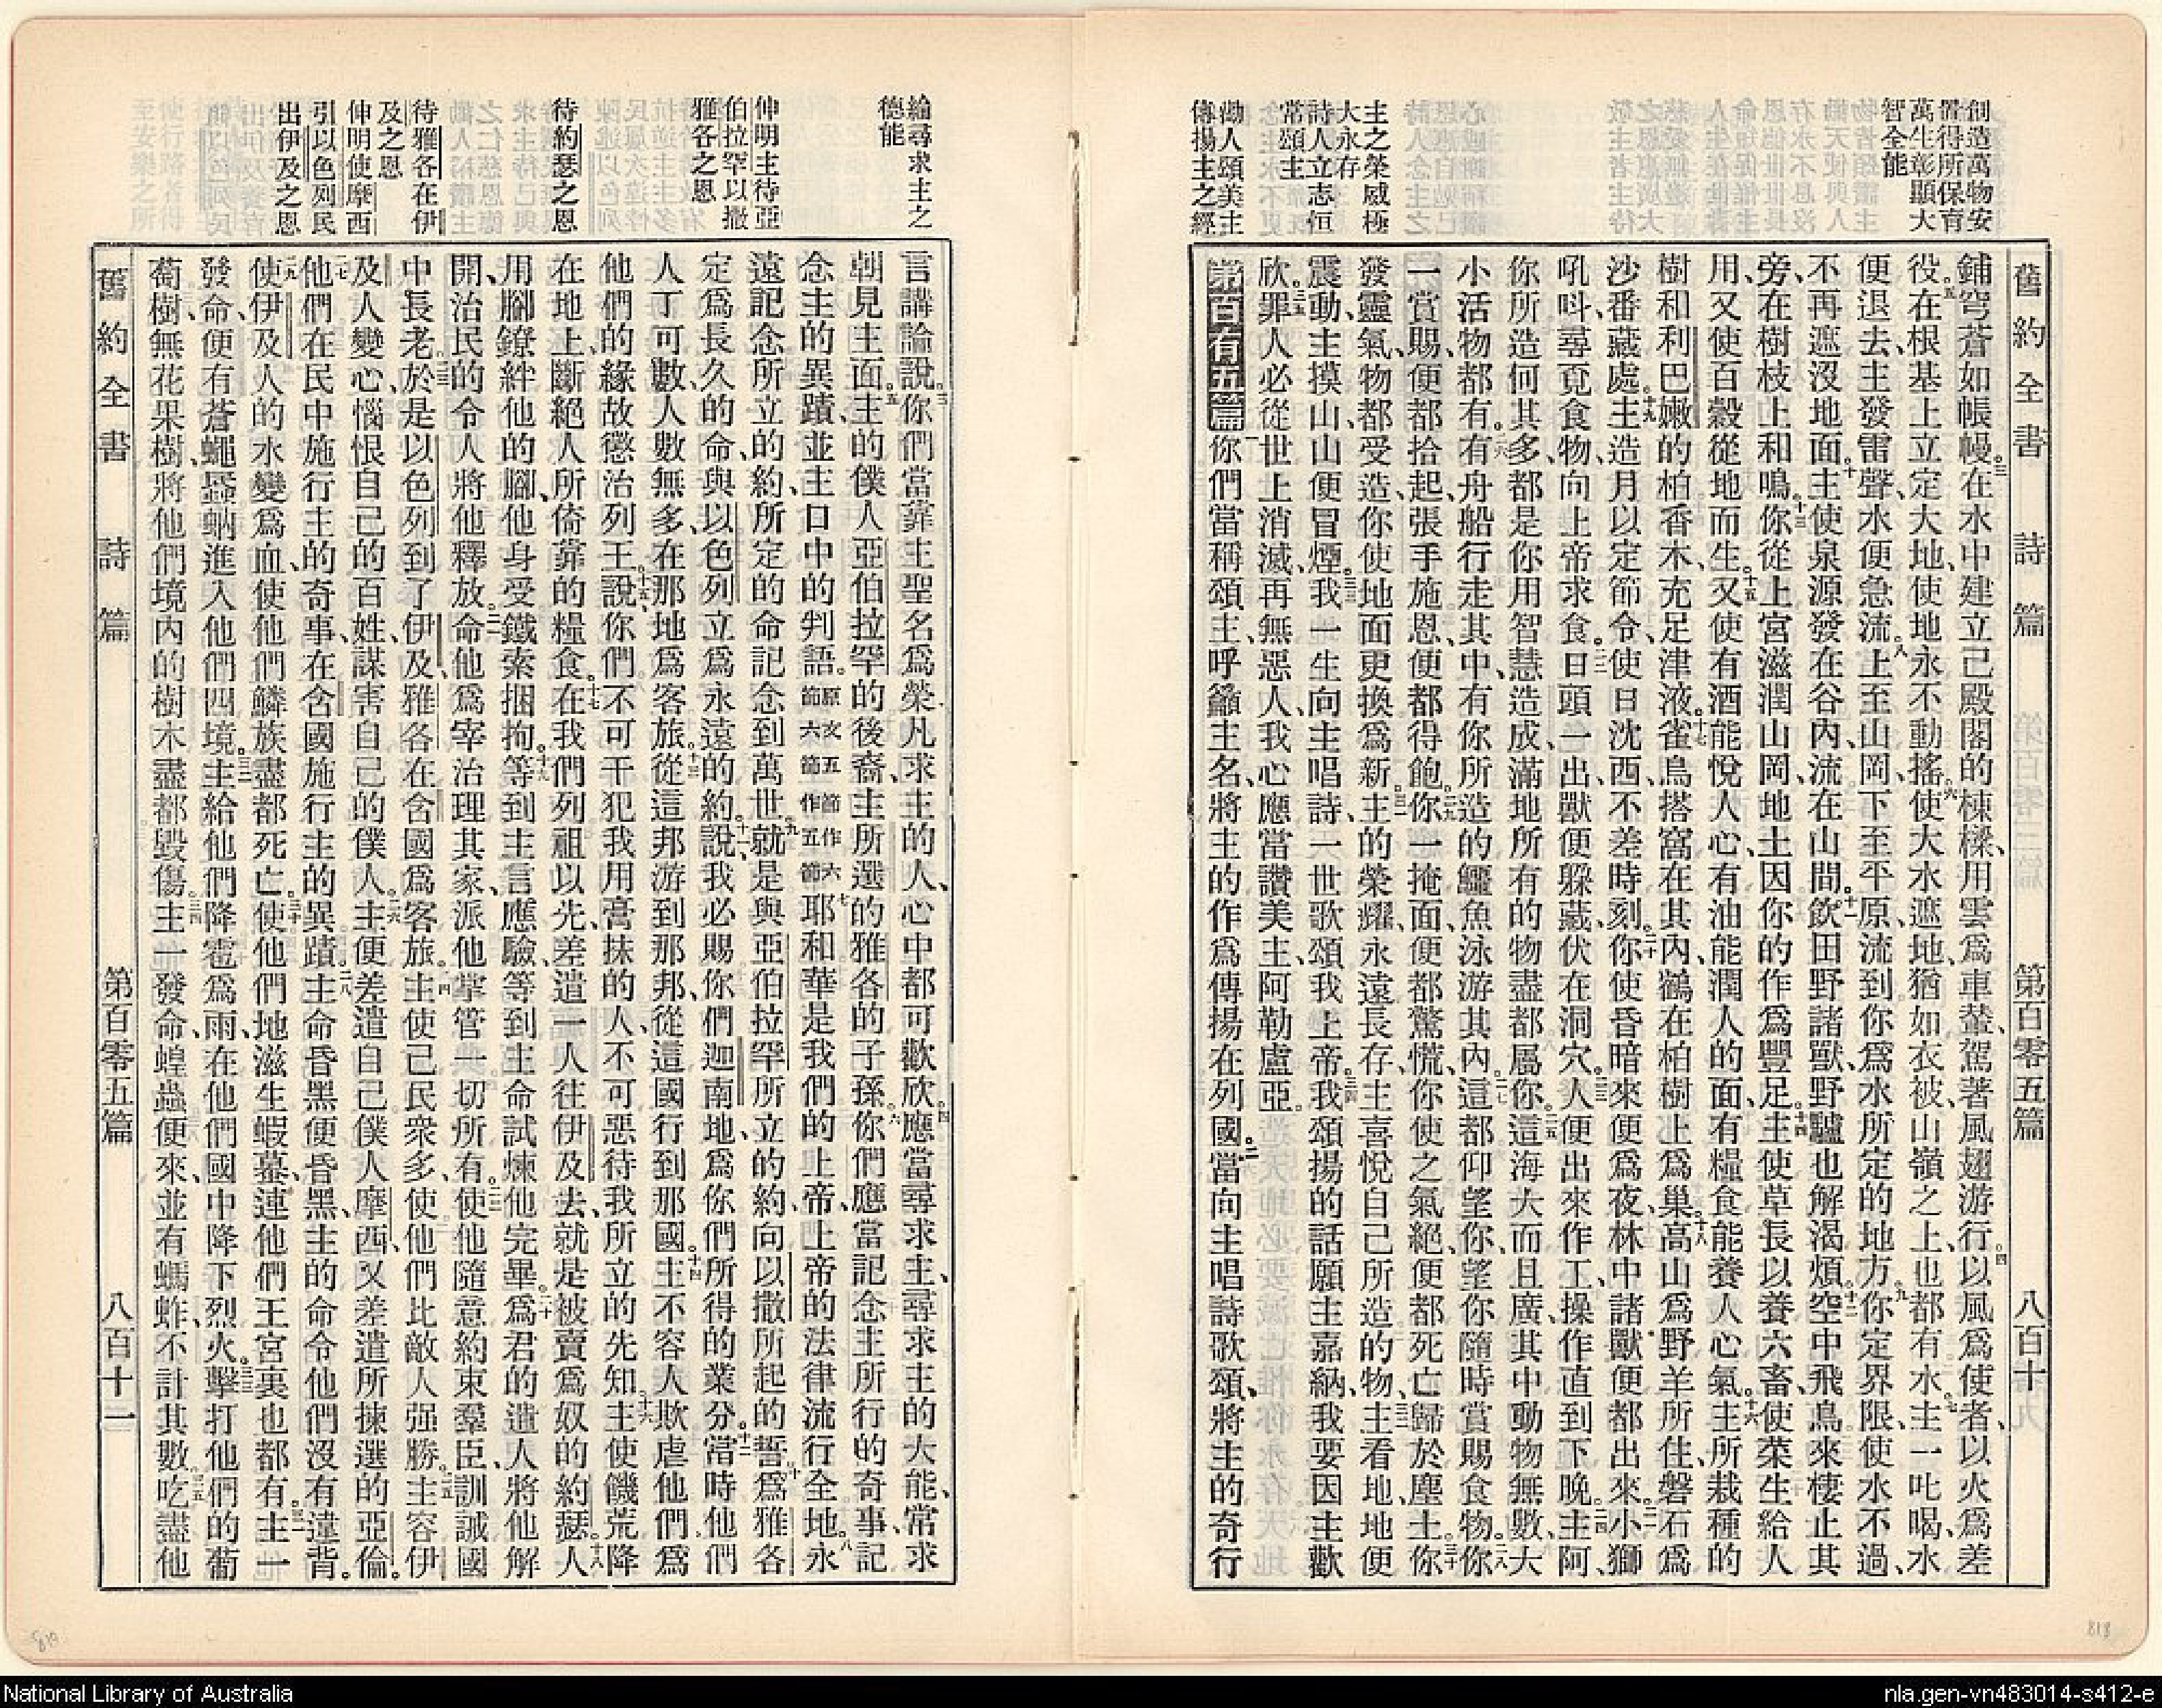 創造萬物安
置得所保育
萬生彰顯大
智全能
主之榮威極
大永存
詩人立志恒
常頌主
勸人頌美主
傳揚主之經
舊約全書 詩篇 第百零五篇 八百十
鋪穹蒼如帳幔。三在水中建立己殿閣的棟樑、用雲爲車輦、駕著風翅游行。四以風爲使者、以火爲差
役。五在根基上立定大地、使地永不動搖。六使大水遮地、猶如衣被、山嶺之上、也都有水。七主一叱喝、水
便退去、主發雷聲、水便急流。八上至山岡、下至平原、流到你爲水所定的地方。九你定界限、使水不過、
不再遮沒地面。十主使泉源發在谷內、流在山間。十一飲田野諸獸、野驢也解渴煩。十二空中飛鳥來棲止其
旁、在樹枝上和鳴。十三你從上宮滋潤山岡、地土因你的作爲豐足。十四主使草長以養六畜、使菜生給人
用、又使百穀從地而生。十五又使有酒能悅人心、有油能潤人的面、有糧食能養人心氣。十六主所栽種的
樹和利巴嫩的柏香木、充足津液。十七雀鳥搭窩在其內、鶴在柏樹上爲巢。十八高山爲野羊所住、磐石爲
沙番藏處。十九主造月以定節令、使日沈西、不差時刻。二十你使昏暗來便爲夜、林中諸獸便都出來。二一小獅
吼呌尋覓食物、向上帝求食。二二日頭一出、獸便躲藏、伏在洞穴。二三人便出來作工、操作直到下晚。二四主阿、
你所造何其多、都是你用智慧造成、滿地所有的物、盡都屬你。二五這海大而且廣、其中動物無數、大
小活物都有。二六有舟船行走其中、有你所造的鱷魚泳游其內。二七這都仰望你、望你隨時賞賜食物。二八你
一賞賜、便都拾起、張手施恩、便都得飽。二九你一掩面、便都驚慌、你使之氣絕、便都死亡歸於塵土。三十你
發靈氣、物都受造、你使地面更換爲新。三一主的榮耀永遠長存、主喜悅自己所造的物。三二主看地、地便
震動、主摸山、山便冒煙。三三我一生向主唱詩、一世歌頌我上帝。三四我頌揚的話願主嘉納、我要因主歡
欣。三五罪人必從世上消滅、再無惡人、我心應當讚美主、阿勒盧亞。
第百有五篇 一你們當稱頌主、呼籲主名、將主的作爲傳揚在列國。二當向主唱詩歌頌、將主的奇行
綸尋求主之
德能
伸明主待亞
伯拉罕以撒
雅各之恩
待約瑟之恩
待雅各在伊
及之恩
伸明使摩西
引以色列民
出伊及之恩
言講論說。三你們當靠主聖名爲榮、凡求主的人、心中都可歡欣。四應當尋求主、尋求主的大能、常求
朝見主面。五主的僕人亞伯拉罕的後裔、主所選的雅各的子孫、六你們應當記念主所行的奇事、記
念主的異蹟、並主口中的判語。原文五節作六節六節作五節七耶和華是我們的上帝、上帝的法律流行全地。八永
遠記念所立的約、所定的命、記念到萬世。九就是與亞伯拉罕所立的約、向以撒所起的誓。十爲雅各
定爲長久的命、與以色列立爲永遠的約。十一說、我必賜你們迦南地、爲你們所得的業分。十二當時他們
人丁可數、人數無多、在那地爲客旅。十三從這邦游到那邦、從這國行到那國。十四主不容人欺虐他們、爲
他們的緣故懲治列王。十五說、你們不可干犯我用膏抹的人、不可惡待我所立的先知。十六主使饑荒降
在地上、斷絕人所倚靠的糧食。十七在我們列祖以先、差遣一人往伊及去、就是被賣爲奴的約瑟。十八人
用腳鐐絆他的腳、他身受鐵索捆拘。十九等到主言應驗、等到主命試煉他完畢。二十爲君的遣人將他解
開、治民的令人將他釋放。二一命他爲宰治理其家、派他掌管一切所有。二二使他隨意約束羣臣、訓誡國
中長老。二三於是以色列到了伊及、雅各在含國爲客旅。二四主使己民衆多、使他們比敵人强勝。二五主容伊
及人變心、惱恨自己的百姓、謀害自己的僕人。二六主便差遣自己僕人摩西、又差遣所揀選的亞倫。
二七他們在民中施行主的奇事、在含國施行主的異蹟。二八主命昏黑便昏黑、主的命令他們沒有違背。
二九使伊及人的水變爲血、使他們鱗族盡都死亡。三十使他們地滋生蝦蟇、連他們王宮裏也都有。三一主一
發命、便有蒼蠅蟁蚋進入他們四境。三二主給他們降雹爲雨、在他們國中降下烈火。三三擊打他們的葡
萄樹、無花果樹、將他們境內的樹木盡都毀傷。三四主一發命、蝗蟲便來、並有螞蚱不計其數。三五吃盡他
舊約全書 詩篇 第百零五篇 八百十一
819
818
National Library of Australia
nla.gen-vn483014-s412-e